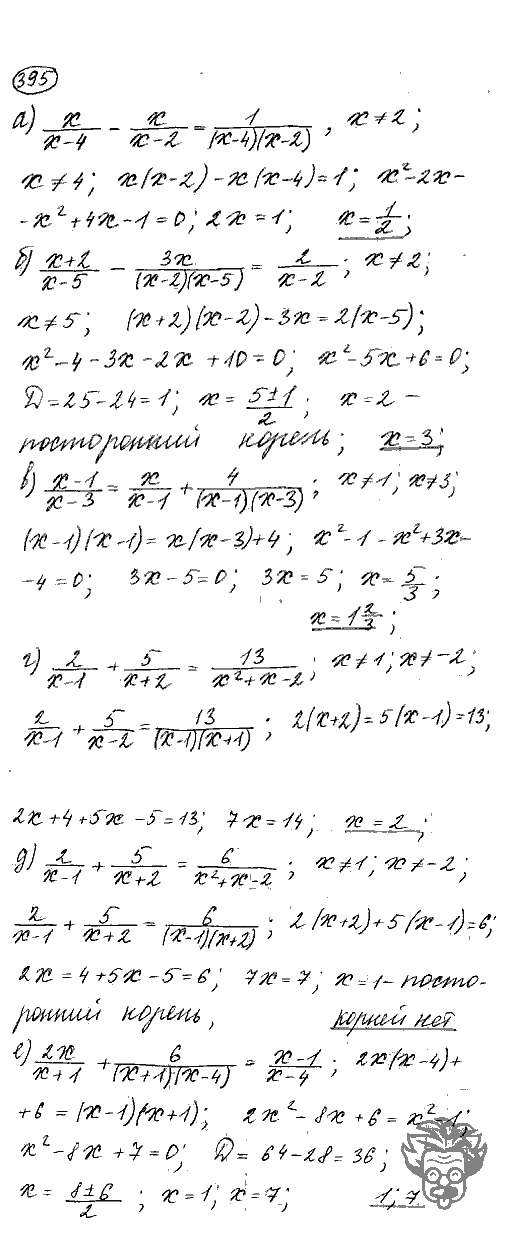 395
а) x/(x-4) - x/(x-2) = 1/((x-4)(x-2)), x≠2;
x≠4; x(x-2)-x(x-4)=1; x²-2x-
-x²+4x-1=0; 2x=1; x=1/2;
б) (x+2)/(x-5) - 3x/((x-2)(x-5)) = 2/(x-2); x≠2;
x≠5; (x+2)(x-2)-3x=2(x-5);
x²-4-3x-2x+10=0; x²-5x+6=0;
D=25-24=1; x=(5±1)/2; x=2 -
посторонний корень; x=3;
в) (x-1)/(x-3) = x/(x-1) + 4/((x-1)(x-3)); x≠1; x≠3;
(x-1)(x-1)=x(x-3)+4; x²-1-x²+3x-
-4=0; 3x-5=0; 3x=5; x=5/3;
x=1 2/3;
г) 2/(x-1) + 5/(x+2) = 13/(x²+x-2); x≠1; x≠-2;
2/(x-1) + 5/(x-2) = 13/((x-1)(x+1)); 2(x+2)=5(x-1)=13;
2x+4+5x-5=13; 7x=14; x=2;
д) 2/(x-1) + 5/(x+2) = 6/(x²+x-2); x≠1; x≠-2;
2/(x-1) + 5/(x+2) = 6/((x-1)(x+2)); 2(x+2)+5(x-1)=6;
2x=4+5x-5=6; 7x=7; x=1- посто-
ронний корень, корней нет
е) 2x/(x+1) + 6/((x+1)(x-4)) = (x-1)/(x-4); 2x(x-4)+
+6=(x-1)(x+1); 2x²-8x+6=x²-1;
x²-8x+7=0; D=64-28=36;
x=(8±6)/2; x=1; x=7; 1; 7